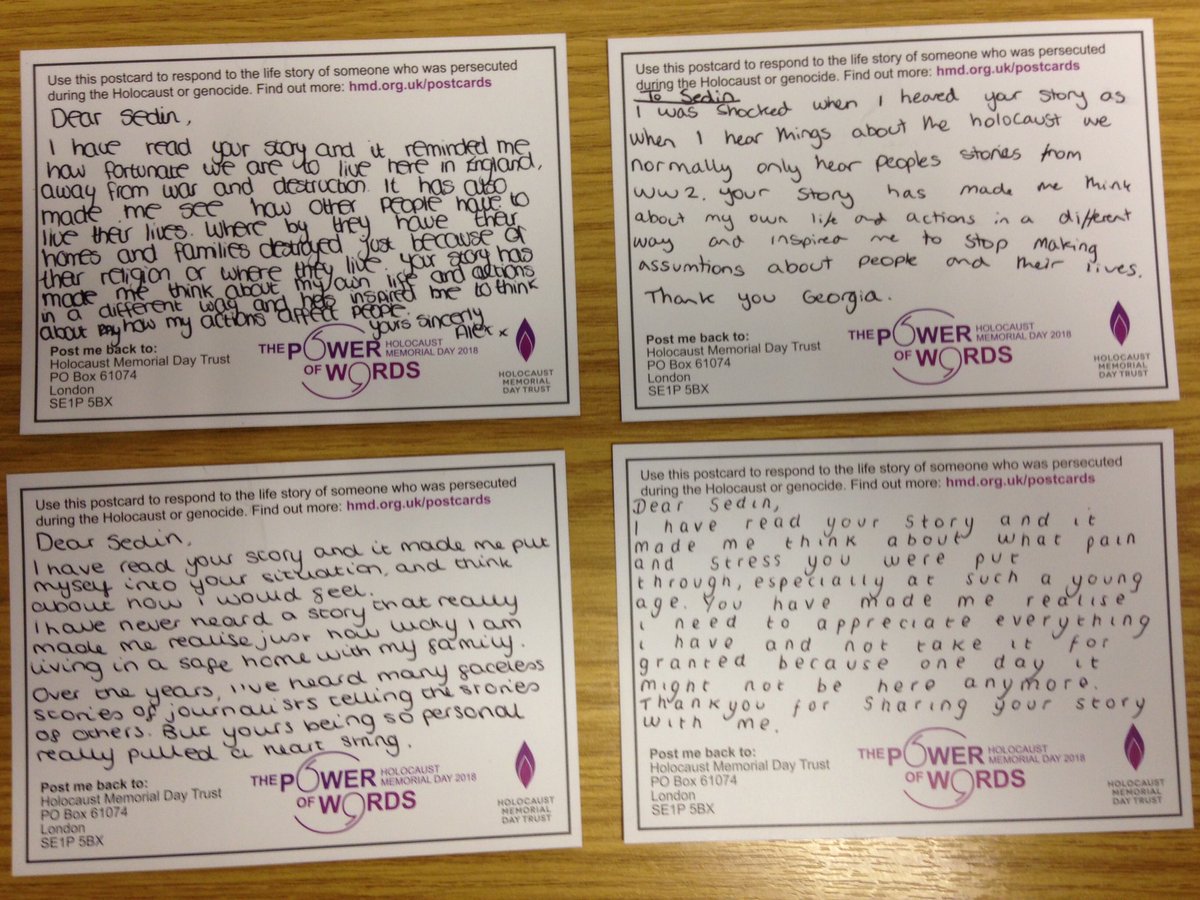 Use this postcard to respond to the life story of someone who was persecuted
during the Holocaust or genocide. Find out more: hmd.org.uk/postcards
Dear Sedin,
I have read your story and it reminded me
how fortunate we are to live here in England,
away from war and destruction. It has also
made me see how other people have to
live their lives. Where by they have their
homes and families destroyed just because of
their religion or where they live. Your story has
made me think about my own life and actions
in a different way and has inspired me to think
about how my actions affect people.
yours sincerly
Alex x
Post me back to:
Holocaust Memorial Day Trust
PO Box 61074
London
SE1P 5BX
THE POWER OF WORDS
HOLOCAUST
MEMORIAL DAY 2018
HOLOCAUST
MEMORIAL
DAY TRUST
Use this postcard to respond to the life story of someone who was persecuted
during the Holocaust or genocide. Find out more: hmd.org.uk/postcards
To Sedin
I was shocked when I heared your story as
when I hear things about the holocaust we
normally only hear peoples stories from
WW2. your story has made me think
about my own life and actions in a different
way and inspired me to stop making
assumtions about people and their lives.
Thank you Georgia.
Post me back to:
Holocaust Memorial Day Trust
PO Box 61074
London
SE1P 5BX
THE POWER OF WORDS
HOLOCAUST
MEMORIAL DAY 2018
HOLOCAUST
MEMORIAL
DAY TRUST
Use this postcard to respond to the life story of someone who was persecuted
during the Holocaust or genocide. Find out more: hmd.org.uk/postcards
Dear Sedin,
I have read your story and it made me put
myself into your situation, and think
about how I would feel.
I have never heard a story that really
made me realise just how lucky I am
living in a safe home with my family.
Over the years, I've heard many faceless
stories of journalists telling the stories
of others. But yours being so personal
really pulled a heart string.
Post me back to:
Holocaust Memorial Day Trust
PO Box 61074
London
SE1P 5BX
THE POWER OF WORDS
HOLOCAUST
MEMORIAL DAY 2018
HOLOCAUST
MEMORIAL
DAY TRUST
Use this postcard to respond to the life story of someone who was persecuted
during the Holocaust or genocide. Find out more: hmd.org.uk/postcards
Dear Sedin,
I have read your story and it
made me think about what pain
and stress you were put
through, especially at such a young
age. You have made me realise
i need to appreciate everything
i have and not take it for
granted because one day it
might not be here anymore.
Thankyou for sharing your story
with me.
Post me back to:
Holocaust Memorial Day Trust
PO Box 61074
London
SE1P 5BX
THE POWER OF WORDS
HOLOCAUST
MEMORIAL DAY 2018
HOLOCAUST
MEMORIAL
DAY TRUST